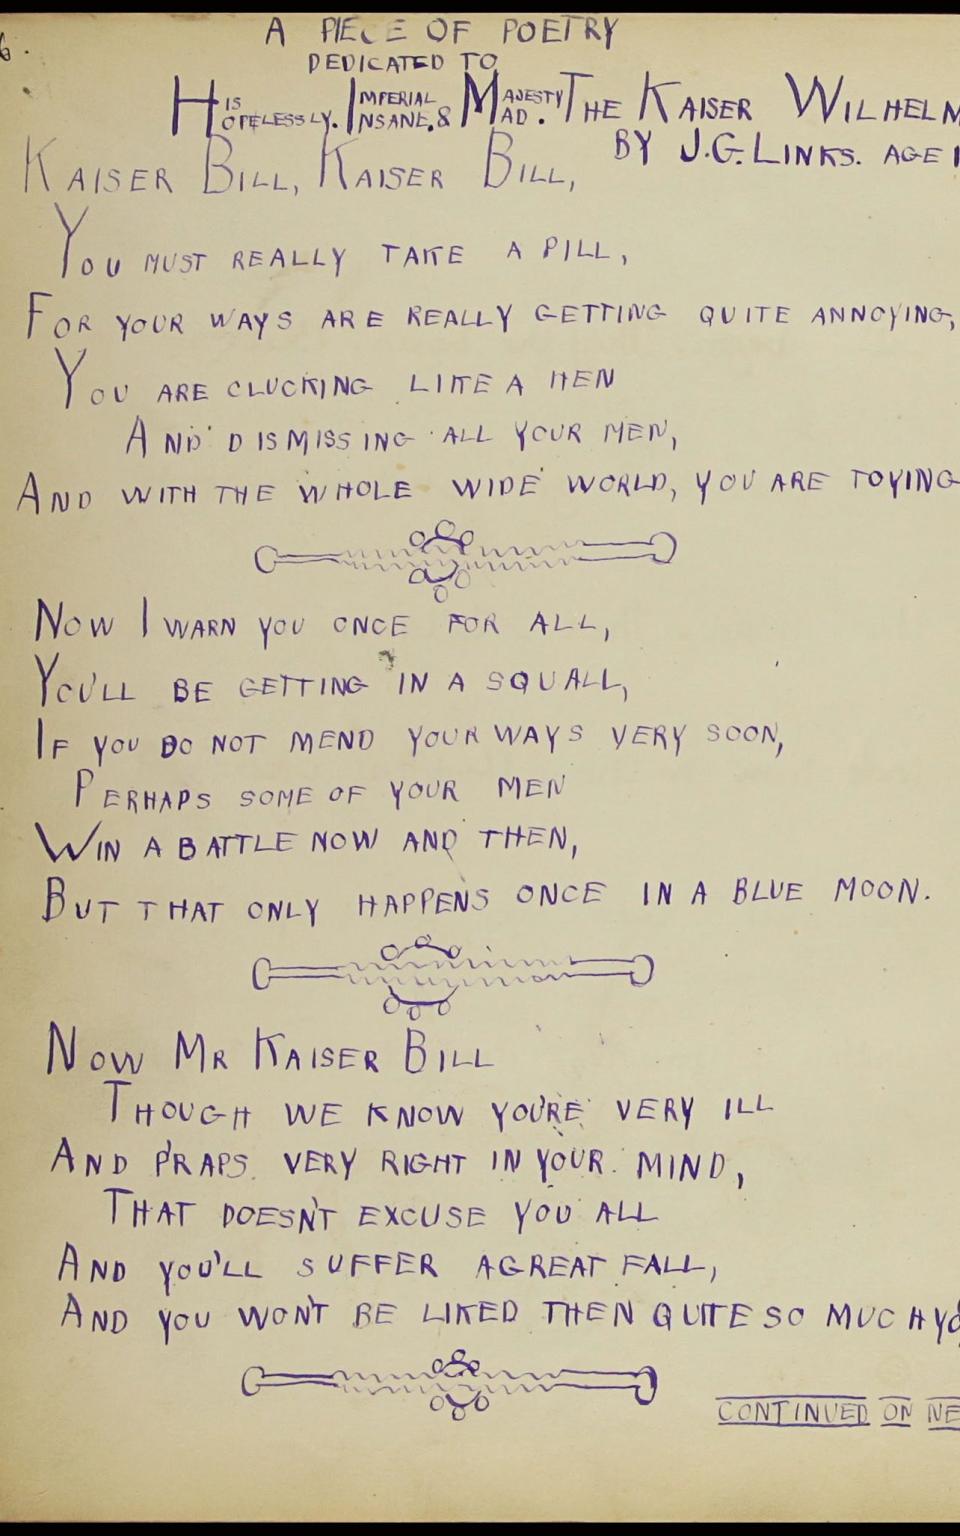 6.
A PIECE OF POETRY
DEDICATED TO
HIS HOPELESSLY. IMPERIAL INSANE. & MAJESTY MAD. THE KAISER WILHELM
BY J.G. LINKS. AGE 1
KAISER BILL, KAISER BILL,
YOU MUST REALLY TAKE A PILL,
FOR YOUR WAYS ARE REALLY GETTING QUITE ANNOYING,
YOU ARE CLUCKING LIKE A HEN
AND DISMISSING ALL YOUR MEN,
AND WITH THE WHOLE WIDE WORLD, YOU ARE TOYING
NOW I WARN YOU ONCE FOR ALL,
YOU'LL BE GETTING IN A SQUALL,
IF YOU DO NOT MEND YOUR WAYS VERY SOON,
PERHAPS SOME OF YOUR MEN
WIN A BATTLE NOW AND THEN,
BUT THAT ONLY HAPPENS ONCE IN A BLUE MOON.
NOW MR KAISER BILL
THOUGH WE KNOW YOU'RE VERY ILL
AND P'RAPS VERY RIGHT IN YOUR MIND,
THAT DOESN'T EXCUSE YOU ALL
AND YOU'LL SUFFER A GREAT FALL,
AND YOU WON'T BE LIKED THEN QUITE SO MUCH
CONTINUED ON NE